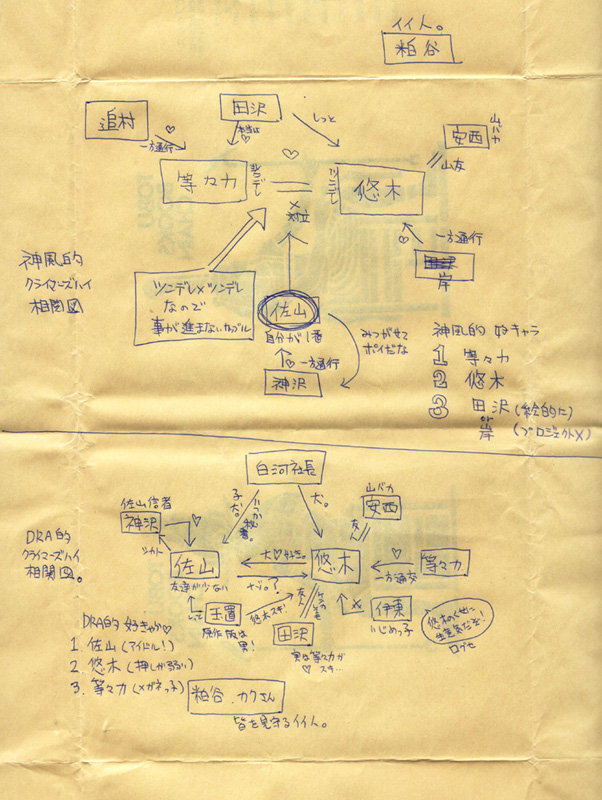 イイ人。
粕谷
追村
一方通行
田沢
本当は
しっと
山バカ
安西
山友
等々力
ツンデレ
ツンデレ
悠木
対立
一方通行
岸
神風的
クライマーズハイ
相関図
ツンデレ×ツンデレ
なので
事が進まないカップル
佐山
自分が1番
一方通行
神沢
みつがせて
ポイだな
神風的 好キャラ
1 等々力
2 悠木
3 田沢(絵的に)
or
岸 (プロジェクトX)
白河社長
佐山信者
神沢
犬。
山バカ
安西
友人
DRA的
クライマーズハイ
相関図。
佐山
友達が少ない
大♡好き。
ナゾの?
悠木
一方通交
等々力
玉置
悠木スキ!
原作版は
男!
田沢
実は等々力が
♡スキ..
伊東
いじめっ子
悠木のくせに
生意気だぞ!
ログセ
DRA的好きキャラ♡
1. 佐山(アイドル!)
2. 悠木(押しが弱い)
3. 等々力(メガネっ子)
粕谷.カクさん
皆を見守るイイ人。